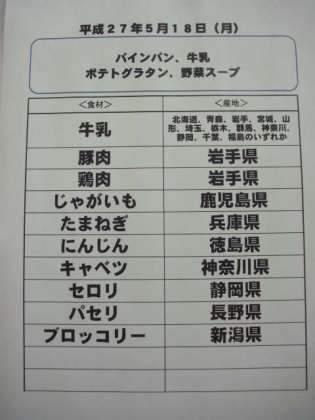 平成２７年５月１８日（月）
パインパン、牛乳
ポテトグラタン、野菜スープ
＜食材＞ ＜産地＞
牛乳 北海道、青森、岩手、宮城、山
形、埼玉、栃木、群馬、神奈川、
静岡、千葉、福島のいずれか
豚肉 岩手県
鶏肉 岩手県
じゃがいも 鹿児島県
たまねぎ 兵庫県
にんじん 徳島県
キャベツ 神奈川県
セロリ 静岡県
パセリ 長野県
ブロッコリー 新潟県